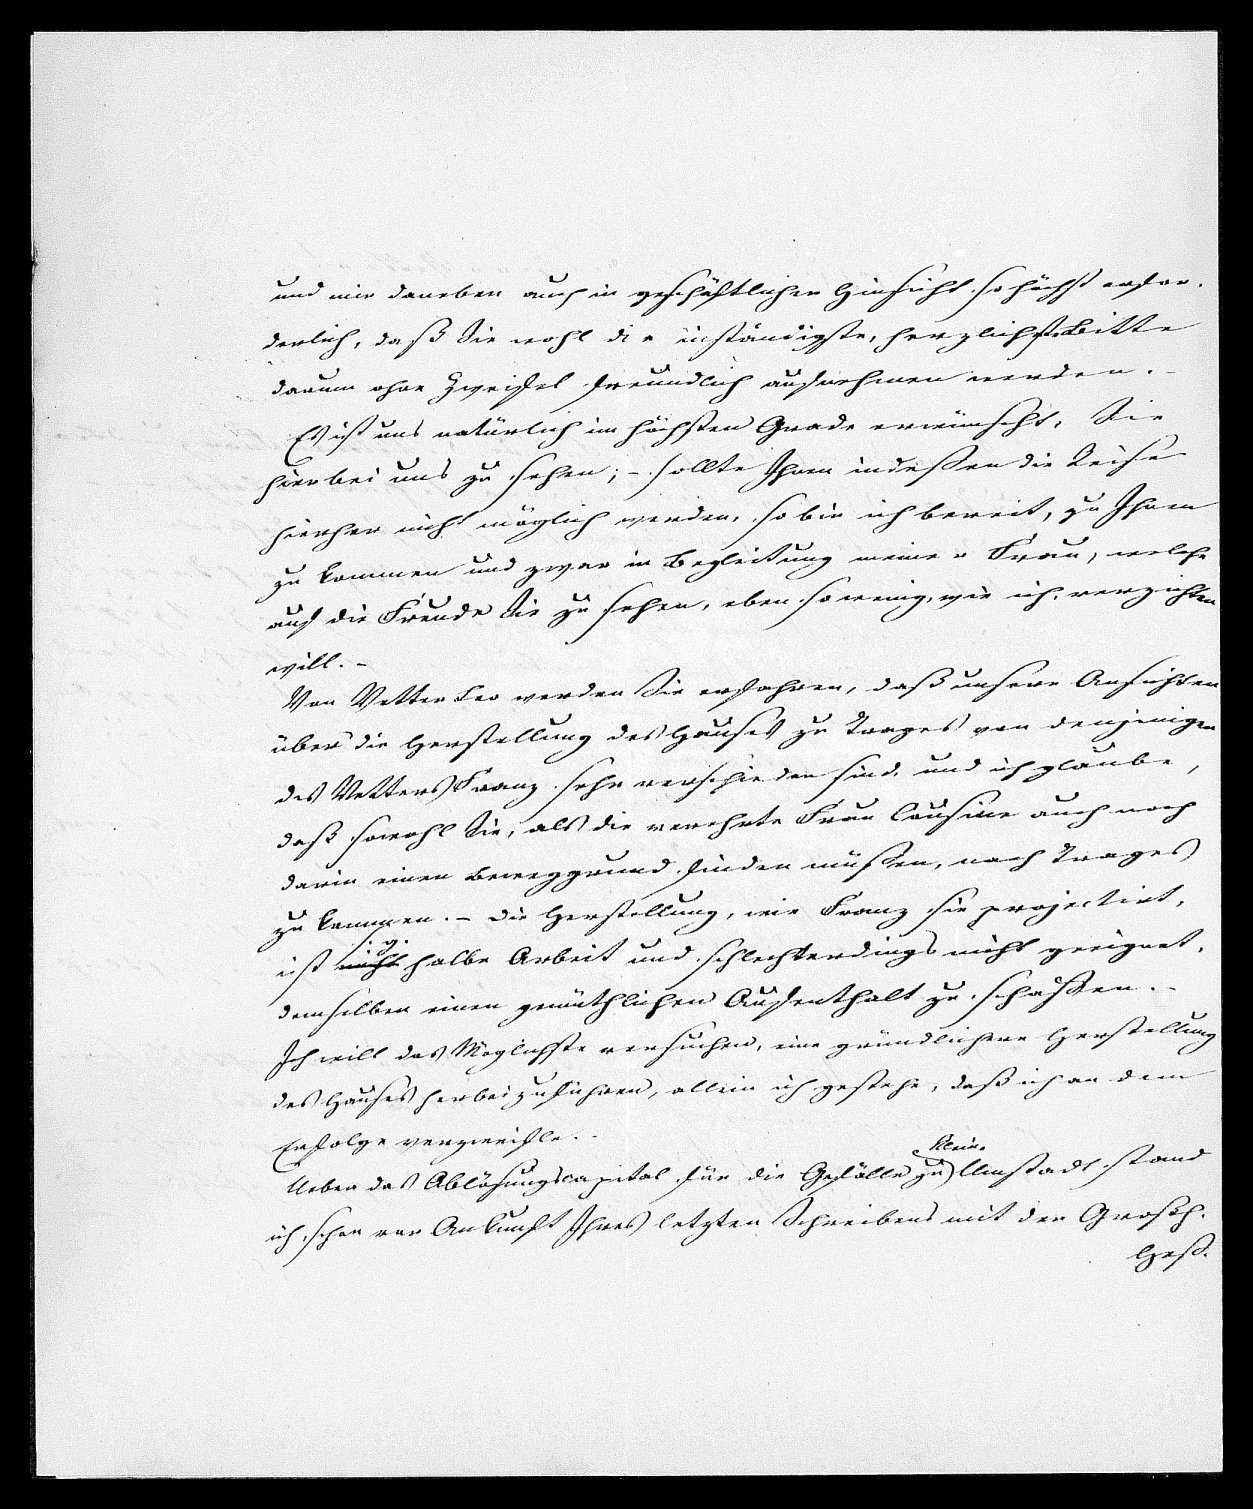 und mir daneben auch in geschäftlicher Hinsicht so höchst erfor-
derlich, daß Sie wohl die inständigste, herzlichste Bitte
darum ohne Zweifel freundlich aufnehmen werden. -
Es ist uns natürlich im höchsten Grade erwünscht, Sie
hier bei uns zu sehen; - sollte Ihnen indessen die Reise
hierher nicht möglich werden, so bin ich bereit, zu Ihnen
zu kommen und zwar in Begleitung meiner Frau, welche
auf die Freude Sie zu sehen, eben so wenig, wie ich, verzichten
will. -
Von Vetter Leo werden Sie erfahren, daß unsere Ansichten
über die Herstellung des Hauses zu Trages von denjenigen
des Vetters Franz sehr verschieden sind, und ich glaube,
daß sowohl Sie, als die verehrte Frau Cousine auch noch
darin einen Beweggrund finden müssen, nach Trages
zu kommen. - Die Herstellung, wie Franz sie projectirt,
ist nicht halbe Arbeit und schlechterdings nicht geeignet,
demselben einen gemüthlichen Aufenthalt zu schaffen. -
Ich will das Möglichste versuchen, eine gründlichere Herstellung
des Hauses herbeizuführen, allein ich gestehe, daß ich an dem
Erfolge verzweifle. -
Klein-
Ueber das Ablösungscapital für die Gefälle zu Umstadt stand
ich schon vor Ankunft Ihres letzten Schreibens mit der Grosh.
Heß.